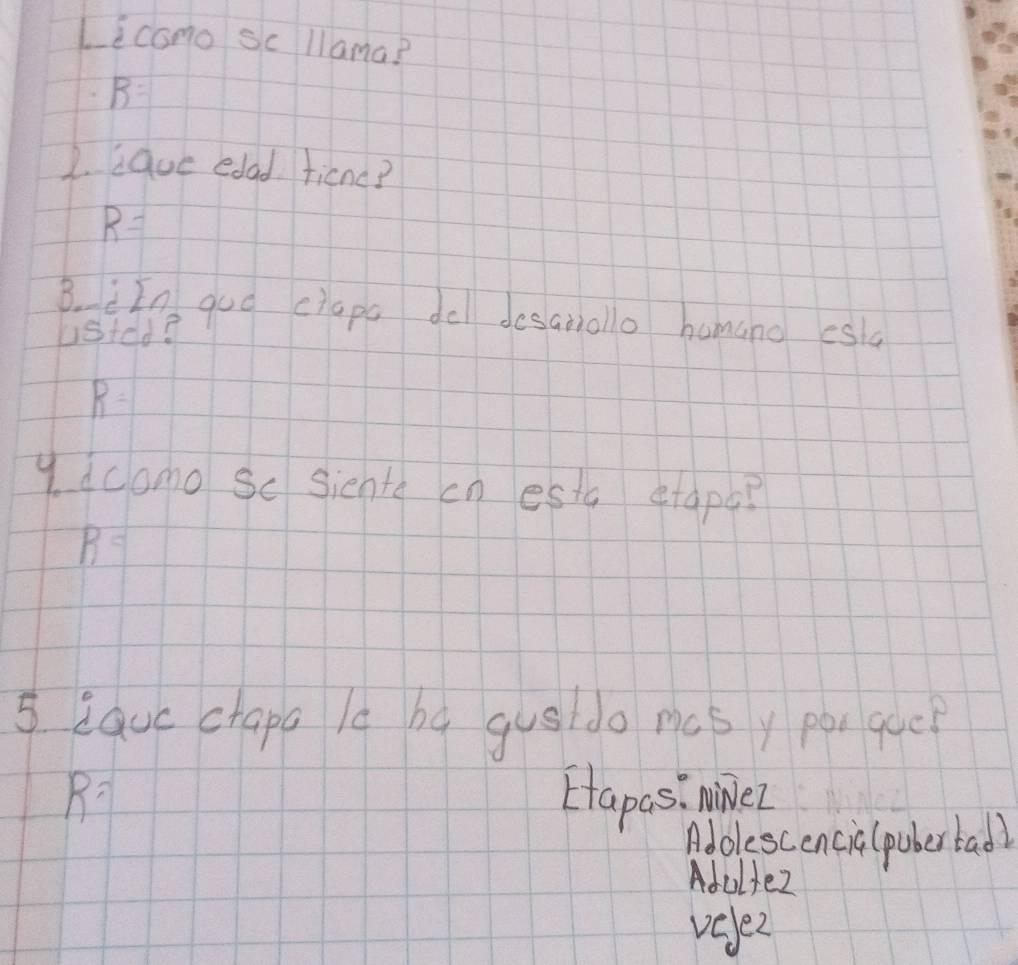 1. ¿como se llama?
R=
2. ¿que edad tiene?
R=
3. ¿En que etapa del desarrollo humano esta
usted?
R=
4. ¿como se siente en esta etapa?
R=
5. ¿que etapa le ha gustdo mas y por que?
R=
Etapas: Niñez
Adolescencia (pubertad)
Adultez
vejez